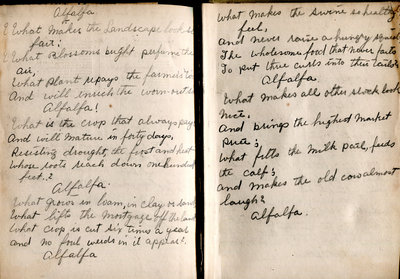 Alfalfa
What makes the Landscape look so
fair;
What blossoms bright perfume the
air,
What plant repays the farmer's
And will enrich the worn-out
Alfalfa!
What is the crop that always pays
And will mature in forty days,
Resisting drought, the frost and heat
Whose roots reach down one hundred
feet.?
Alfalfa.
What grows in loam, in clay or sand
What lifts the mortgage off the land
What crop is cut six times a year
and no foul weeds in it appear?
Alfalfa
What makes the swine so healthy
feel,
And never raise a hungry squeal
The wholesome food that never fails
To put three curls into their tails?
Alfalfa.
What makes all other stock look
nice,
And brings the highest market
price;
What fills the milk pail, feeds
the calf;
And makes the old cow almost
laugh?
Alfalfa.